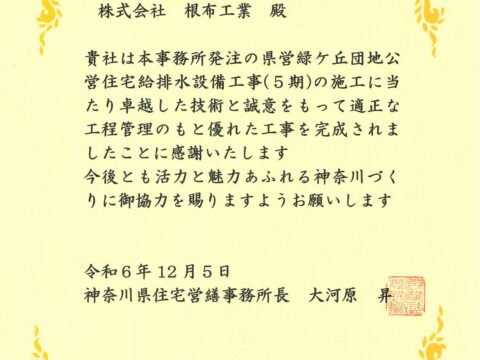 株式会社　根布工業　殿
貴社は本事務所発注の県営緑ケ丘団地公
営住宅給排水設備工事(５期)の施工に当
たり卓越した技術と誠意をもって適正な
工程管理のもと優れた工事を完成されま
したことに感謝いたします
今後とも活力と魅力あふれる神奈川づく
りに御協力を賜りますようお願いします
令和６年１２月５日
神奈川県住宅営繕事務所長　大河原　昇